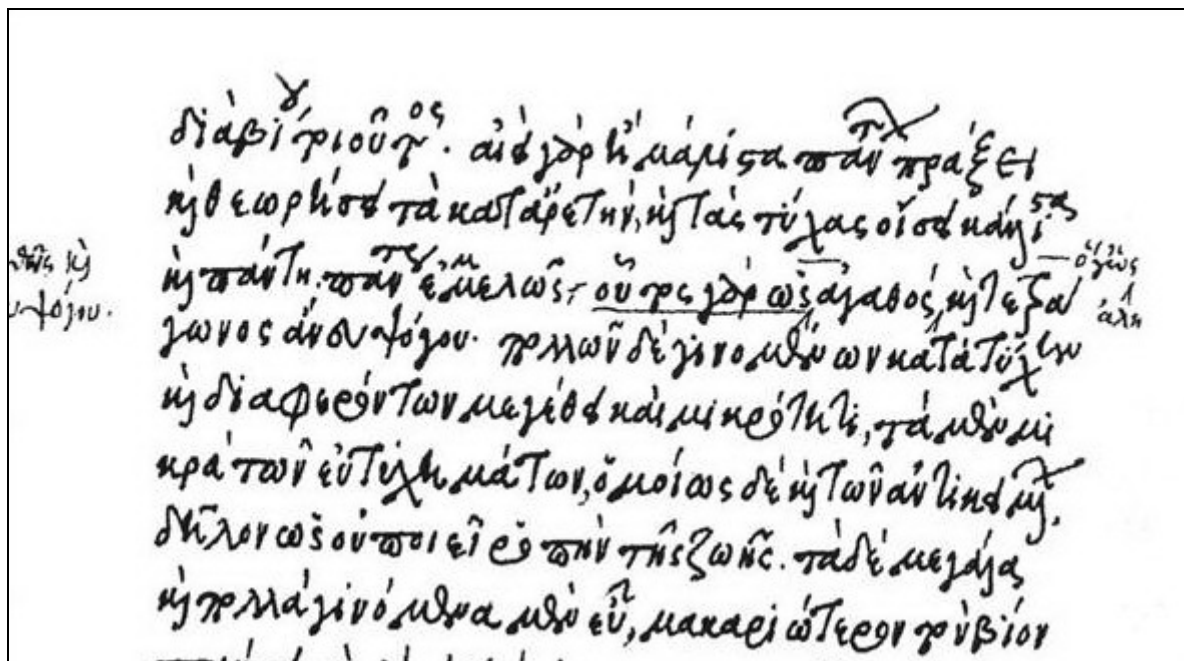 διὰ βίου τοιοῦτος. αἰεὶ γὰρ ἢ μάλιστα πάντων πράξει
καὶ θεωρήσει τὰ κατ' ἀρετήν, καὶ τὰς τύχας οἴσει κάλλιστα
καὶ πάντη πάντως ἐμμελῶς οὕτος γὰρ ὡς ἀγαθός, καὶ τετρά
γωνος ἄνευ ψόγου. πολλῶν δὲ γινομένων κατὰ τύχην
καὶ διαφερόντων μεγέθει καὶ μικρότητι, τὰ μὲν μι
κρὰ τῶν εὐτυχημάτων, ὁμοίως δὲ καὶ τῶν ἀντικειμένων,
δῆλον ὡς οὐ ποιεῖ ῥοπὴν τῆς ζωῆς. τὰ δὲ μεγάλα
καὶ πολλὰ γινόμενα μὲν εὖ, μακαριώτερον τὸν βίον
ψόγου.